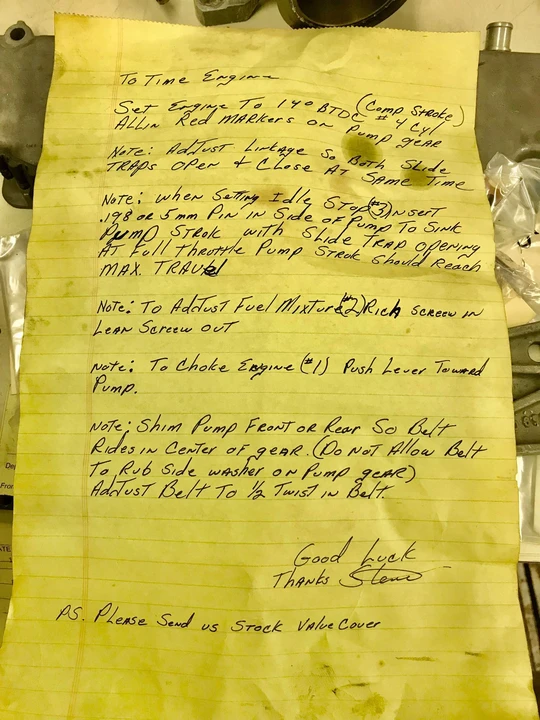 To Time Engine
Set Engine To 140 BTDC (Comp Stroke) #4 Cyl
Allin Red Markers on Pump gear
Note: Adjust Linkage So Both Slide
Traps Open & Close At Same Time
Note: when Setting Idle Stop (#3) Insert
.198 or 5mm Pin in Side of Pump To Sink
Pump Strok with Slide Trap opening
At Full Throttle Pump Strok Should Reach
Max. Travel
Note: To Adjust Fuel Mixture (#2) Rich screw in
Lean Screew out
Note: To Choke Engine (#1) Push Lever Toward
Pump.
Note: Shim Pump Front or Rear So Belt
Rides in Center of gear. (Do Not Allow Belt
To Rub Side washer on Pump gear)
Adjust Belt To 1/2 Twist in Belt.
Good Luck
Thanks Steve
PS. Please Send us Stock Valve Cover